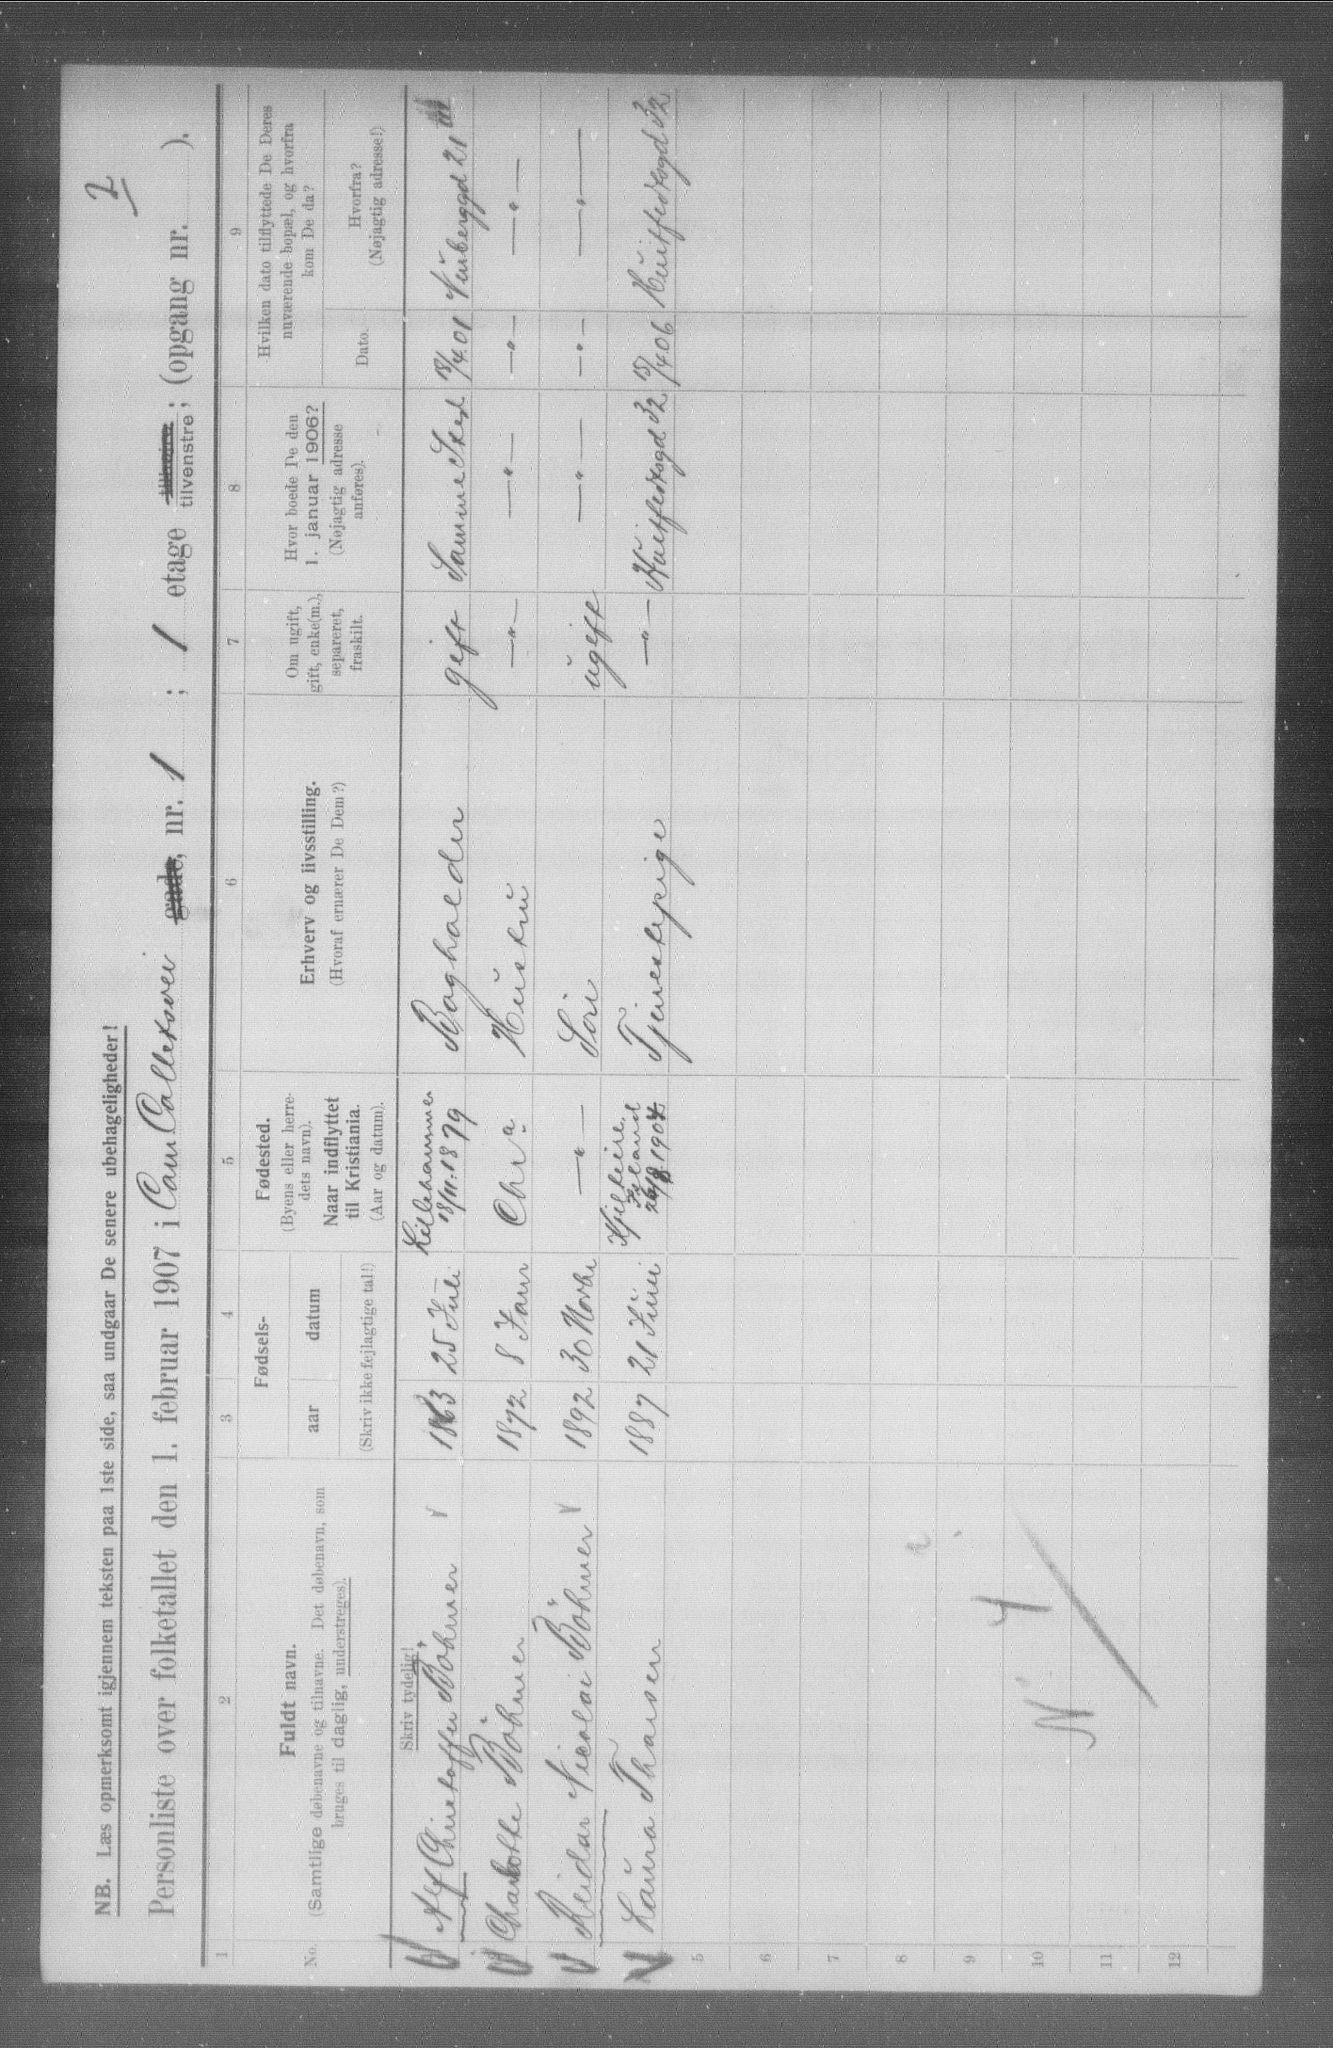 2
NB. Læs opmerksomt igjennem teksten paa 1ste side, saa undgaar De senere ubehageligheder!
Personliste over folketallet den 1. februar 1907 i Cam Collettsvei gade, nr. 1 ; 1 etage tilhøire tilvenstre; (opgang nr. ).
1 2 3 4 5 6 7 8 9
No.
Fuldt navn.
(Samtlige døbenavne og tilnavne. Det døbenavn, som
bruges til daglig, understreges).
Fødsels-
aar datum
(Skriv ikke fejlagtige tal!)
Fødested.
(Byens eller herre-
dets navn).
Naar indflyttet
til Kristiania.
(Aar og datum).
Erhverv og livsstilling.
(Hvoraf ernærer De Dem?)
Om ugift,
gift, enke(m.),
separeret,
fraskilt.
Hvor boede De den
1. januar 1906?
(Nøjagtig adresse
anføres).
Hvilken dato tilflyttede De Deres
nuværende bopæl, og hvorfra
kom De da?
Dato.
Hvorfra?
(Nøjagtig adresse!)
Skriv tydelig!
Alf Christoffer Böhmer 1863 25 Juli Lillehammer 18/11.1879 Bogholder gift Samme Sted 18/4.01
Charlotte Böhmer 1872 8 Janr Chra Hustru —„— —„— —„— —„—
Reidar Nicolai Böhmer 1892 30 Novbr —„— Søn ugift —„— —„— —„—
Laura Thorsen 1887 21 Juni Tjenestepige —„— Huitfeldtsgd 32 15/4 06 Huitfeldtsgd 32
5
6
7
8
9
10
11
12
N 4